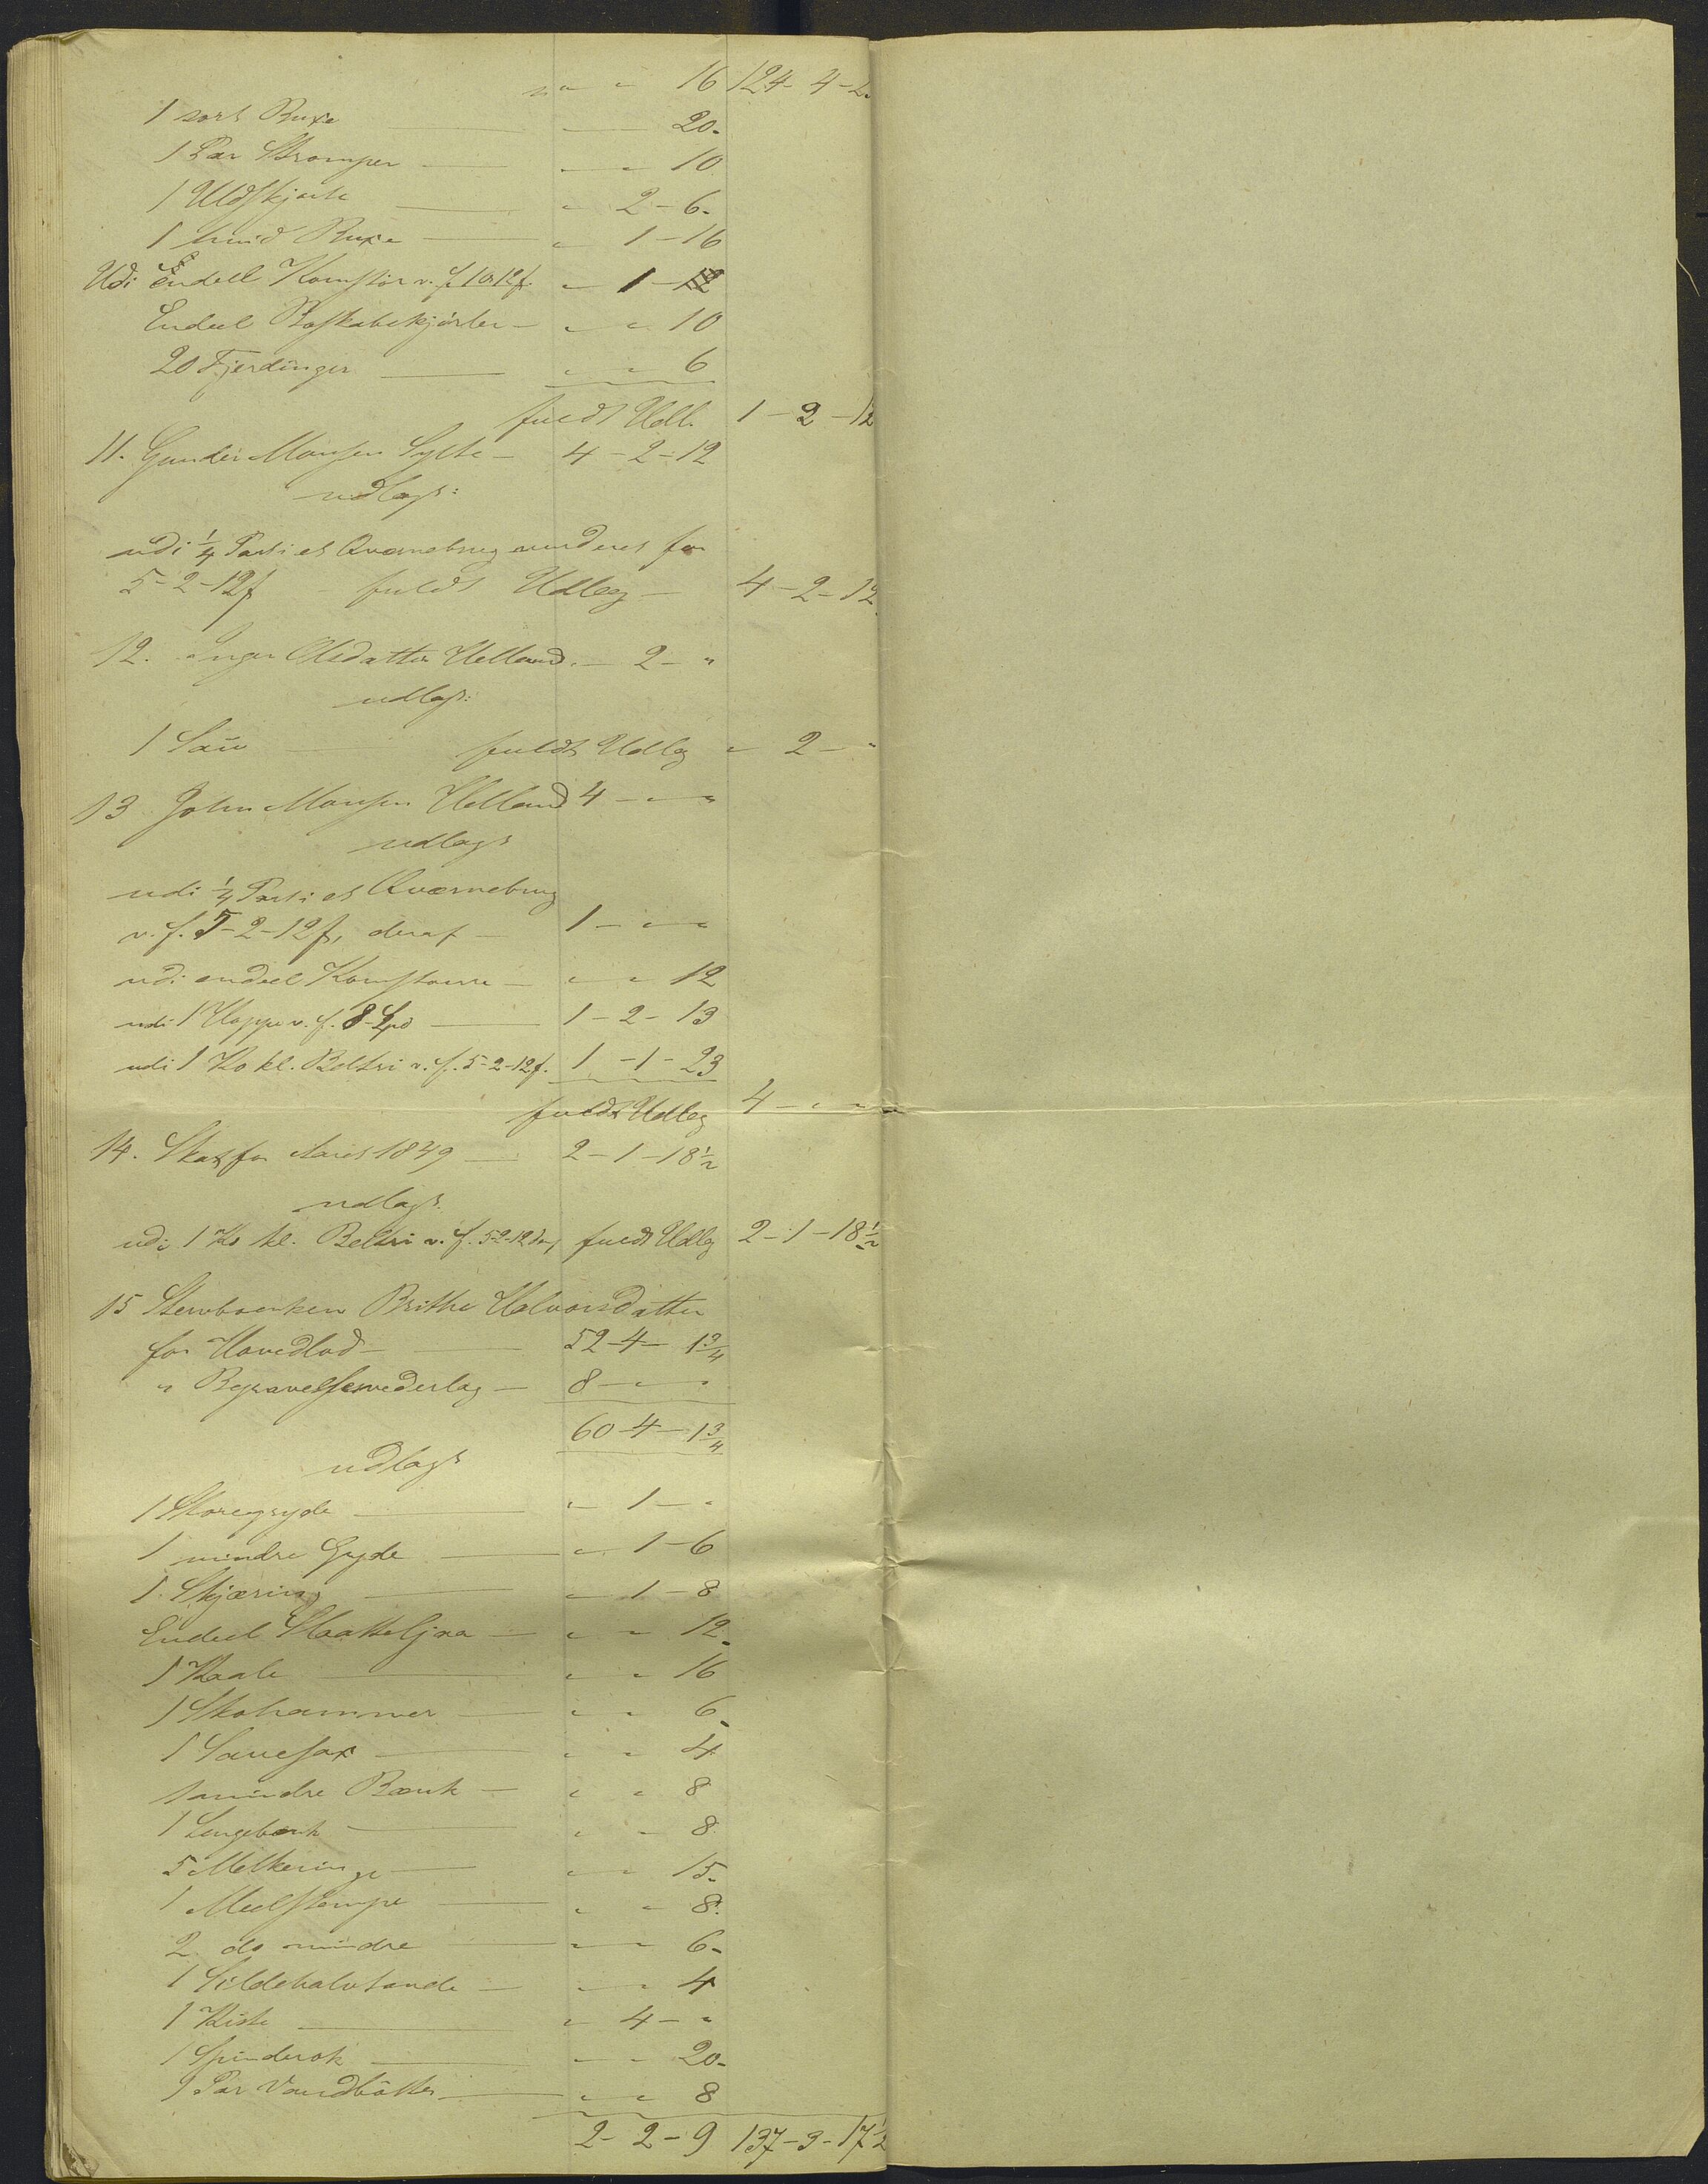 " " 16 124-4-2
1 sort Buxe — " — 20.
1 Par Strømper — " " 10
1 Uldskjorte — " 2-6.
1 hvid Buxe — " 1-16
Udi Endeel v. f. — " 1-12
Endeel — " " 10
20 Fjerdinger — " " 6
fuldt Udl. 1-2-12
11. Gunder Monsen Sylte — 4-2-12
udlagt:
udi 1/4 Part i et Qvernebrug vurderet for
5-2-12f fuldt Udlæg — 4-2-12
12. Inger Olsdatter Helland. — 2-"
udlagt:
1 Sau — fuldt Udlæg " 2-"
13 John Monsen Helland 4-"-"
udlagt
udi 1/4 Part i et Qværnebrug
v. f. 5-2-12f, deraf — 1-"-"
udi endeel — " " 12
udi 1 Hoppe v. f. 8 Spd — 1-2-13
udi 1 Ko kl. v. f. 5-2-12f. 1-1-23
fuldt Udlæg 4-"-"
14. Skat for Aaret 1849 — 2-1-18 1/2
udlagt.
udi 1 Ko kl. v. f. 5-2-12 fuldt Udlæg 2-1-18 1/2
15 Stervboenken Brithe Halvorsdatter
for Hovedlod — 52-4-1 3/4
" Begravelsesvederlag — 8-"-"
60-4-1 3/4
udlagt
1 Storegryde — " 1-"
1 mindre Gryde — " 1-6
1 Skjæring — " 1-8
Endeel — " " 12.
1 — " " 16
1 Skohammer — " " 6.
1 Sauesax — " " 4
1 mindre Bænk — " " 8
1 Sengebænk — " " 8
5 Melkeringe — " " 15.
1 Meelstampe — " " 8.
2 do mindre — " " 6.
1 Sildehalvtønde — " " 4
1 Kiste — " 4-"
1 Spinderok — " " 20.
1 Par Vandbøtter — " " 8
2-2-9 137-3-17 1/2